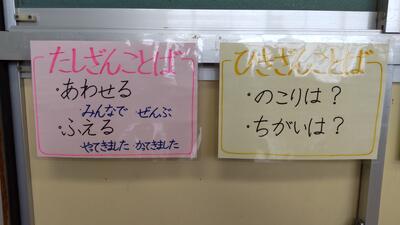 たしざんことば
・あわせる
みんなで ぜんぶ
・ふえる
やってきました かってきました
ひきざんことば
・のこりは？
・ちがいは？